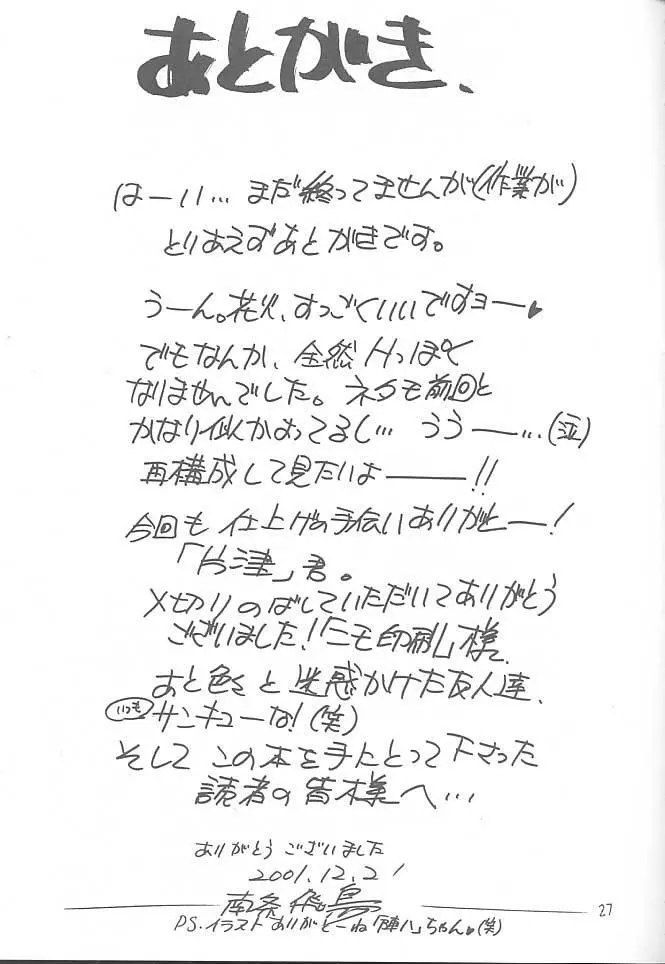 あとがき、
はーい… まだ終ってませんが(作業が)
とりあえずあとがきです。
うーん。花火、すっごくいいですョー♥
でもなんか、全然Hっぽく
なりませんでした。ネタも前回と
かなり似かよってるし… ううー…(泣)
再構成して見たいよー!!
今回も 仕上げの手伝いありがとー!
「片津」君。
〆切りのばしていただいてありがとう
ございました!「ニモ印刷」様。
あと色々と迷惑かけた友人達、
いつもサンキューな!(笑)
そして この本を手にとって下さった
読者の皆様へ…
ありがとうございました
2001.12.21
南条飛鳥
27
PS.イラストありがとーね「陣八」ちゃん♥(笑)